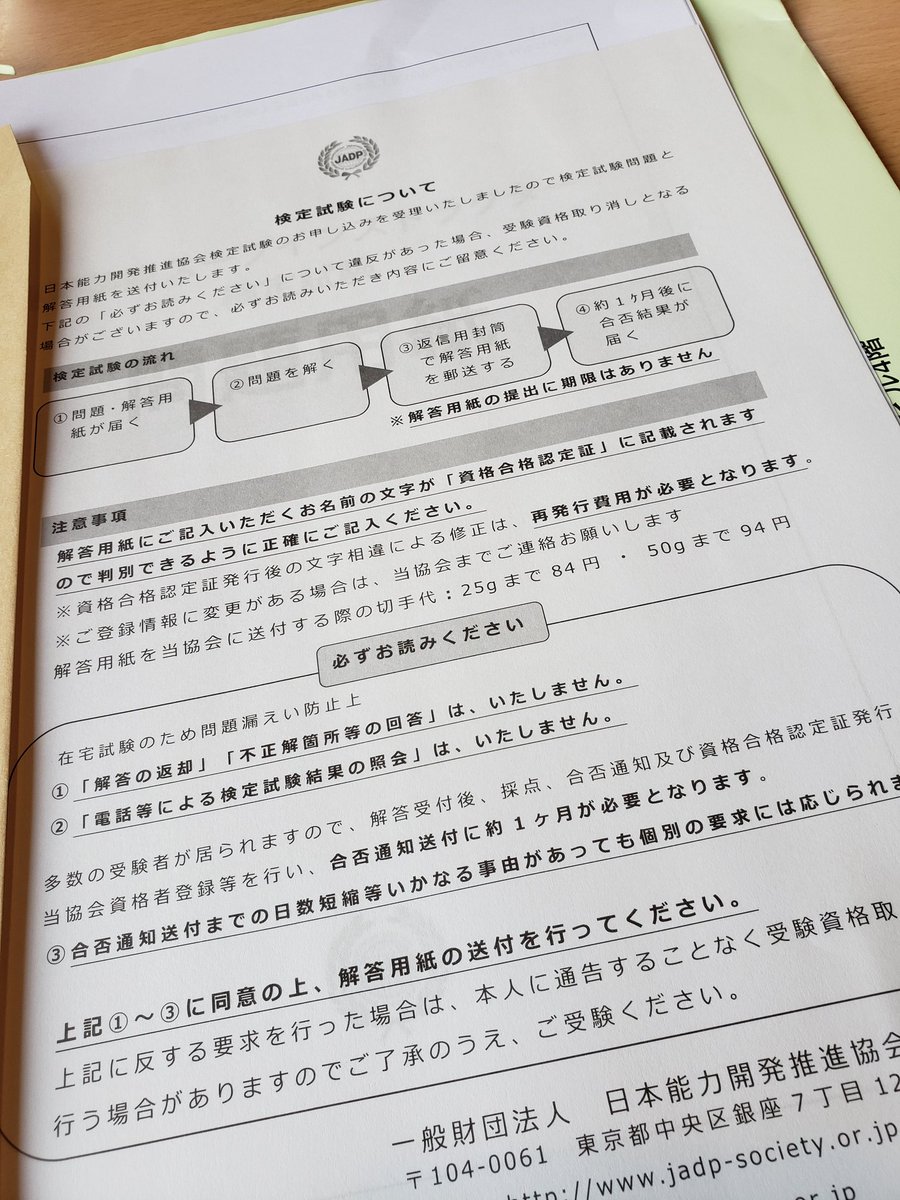 JADP
検定試験について
日本能力開発推進協会検定試験のお申し込みを受理いたしましたので検定試験問題と
解答用紙を送付いたします。
下記の「必ずお読みください」について違反があった場合、受験資格取り消しとなる
場合がございますので、必ずお読みいただき内容にご留意ください。
検定試験の流れ
①問題・解答用
紙が届く
②問題を解く
③返信用封筒
で解答用紙
を郵送する
④約1ヶ月後に
合否結果が
届く
※解答用紙の提出に期限はありません
注意事項
解答用紙にご記入いただくお名前の文字が「資格合格認定証」に記載されます
ので判別できるように正確にご記入ください。
※資格合格認定証発行後の文字相違による修正は、再発行費用が必要となります。
※ご登録情報に変更がある場合は、当協会までご連絡お願いします
解答用紙を当協会に送付する際の切手代：25gまで84円 ・ 50gまで94円
必ずお読みください
在宅試験のため問題漏えい防止上
①「解答の返却」「不正解箇所等の回答」は、いたしません。
②「電話等による検定試験結果の照会」は、いたしません。
多数の受験者が居られますので、解答受付後、採点、合否通知及び資格合格認定証発行
当協会資格者登録等を行い、合否通知送付に約1ヶ月が必要となります。
③合否通知送付までの日数短縮等いかなる事由があっても個別の要求には応じられま
上記①～③に同意の上、解答用紙の送付を行ってください。
上記に反する要求を行った場合は、本人に通告することなく受験資格取
行う場合がありますのでご了承のうえ、ご受験ください。
一般財団法人 日本能力開発推進協会
〒104-0061 東京都中央区銀座7丁目12
http://www.jadp-society.or.jp
or.jp
ル4階